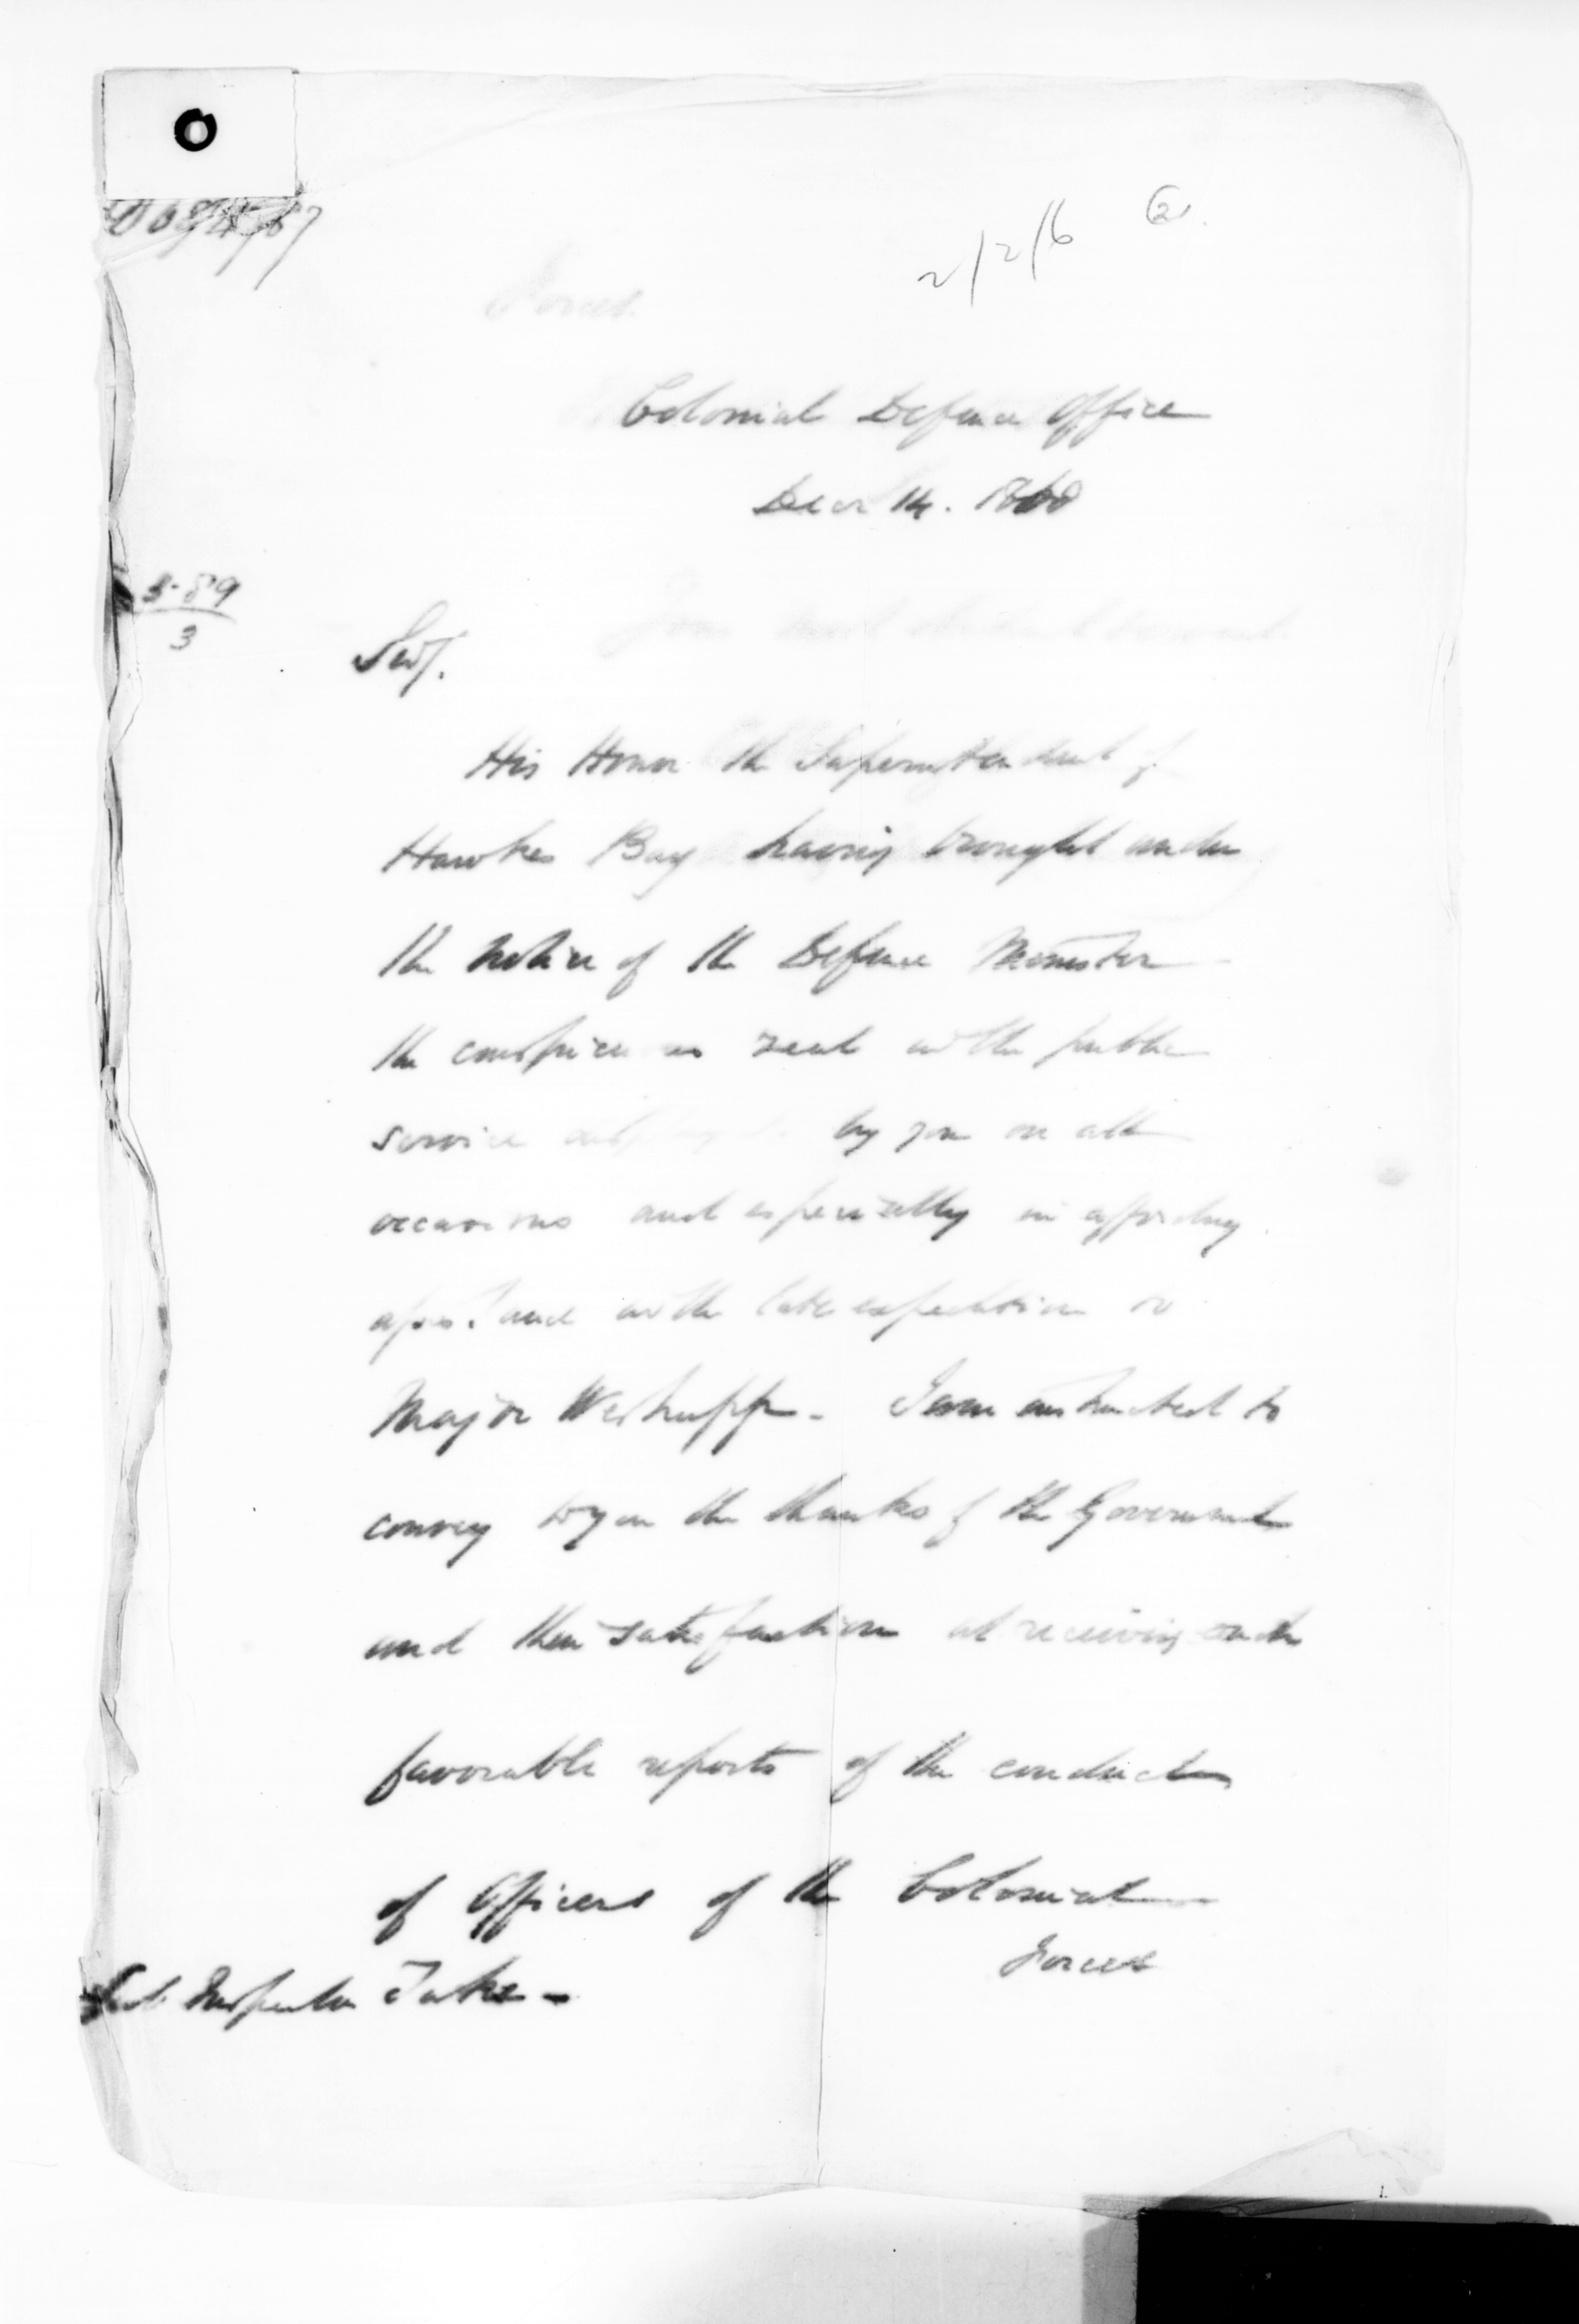 O
2/2/6
Colonial Defence Office
Decr 14. 1868
3-89
3
Sir,
His Honor the Superintendent of
Hawkes Bay having brought under
the notice of the Defence Minister
the conspicuous zeal in the public
service displayed by you on all
occasions and especially in affording
assistance in the late expedition
Major Westrupp - I am instructed to
convey to you the thanks of the Government
and their satisfaction at receiving such
favorable reports of the conduct
of Officers of the Colonial
Forces
Sub Inspector Tuke -